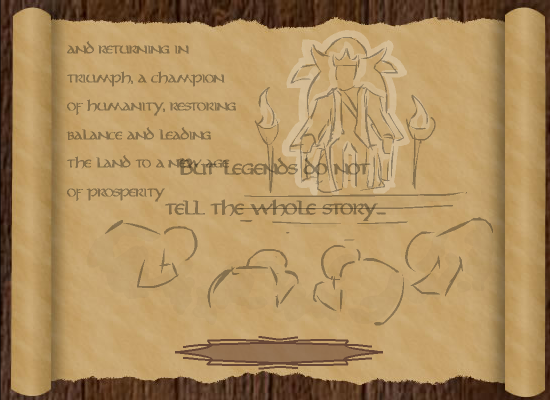 and returning in
triumph, a champion
of humanity, restoring
balance and leading
the land to a new age
of prosperity
But legends do not
tell the whole story_